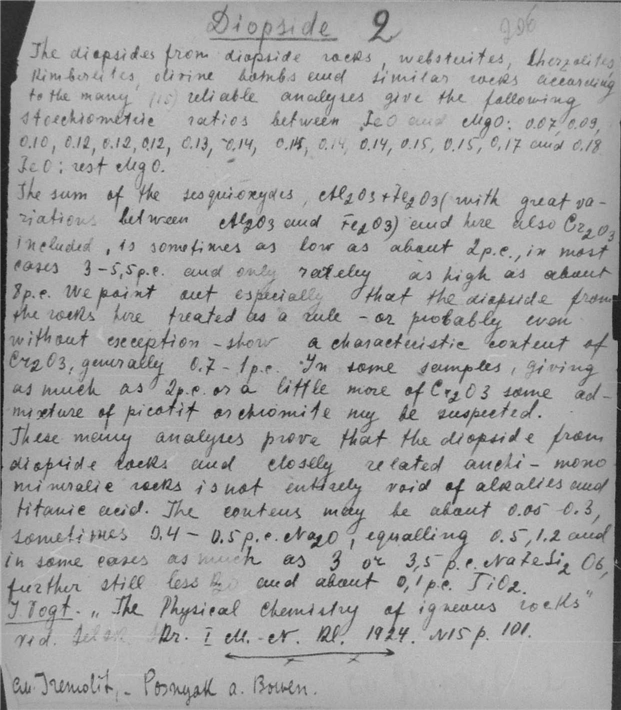 Diopside 2 206
The diopsides from diopside rocks, websterites, lherzolites
kimberlites, olivine bombs and similar rocks according
to the many (15) reliable analyses give the following
stoechiometric ratios between FeO and MgO: 0.07, 0.09,
0.10, 0.12, 0.12, 0.12, 0.13, 0.14, 0.14, 0.14, 0.14, 0.15, 0.15, 0.17 and 0.18
FeO: rest MgO.
The sum of the sesquioxydes, Al2O3+Fe2O3 (with great va-
riations between Al2O3 and Fe2O3) and here also Cr2O3
included, is sometimes as low as about 2 p.c., in most
cases 3-5,5 p.c. and only rateley as high as about
8 p.c. We point out especially that the diopside from
the rocks here treated as a rule - or probably even
without exception - show a characteristic content of
Cr2O3, generally 0.7-1 p.c. In some samples, giving
as much as 2 p.c. or a little more of Cr2O3 some ad-
mixture of picotit or chromite may be suspected.
These many analyses prove that the diopside from
diopside rocks and closely related anchi-mono
mineralic rocks is not entirely void of alkalies and
titanic acid. The contens may be about 0.05-0.3,
sometimes 0.4-0.5 p.c. Na2O, equalling 0.5, 1.2 and
in some cases as much as 3 or 3,5 p.c. NaFeSi2O6,
further still less and about 0,1 p.c. TiO2.
J. Vogt. „The Physical Chemistry of igneous rocks"
Vid. Selsk. Skr. I M.-N. Kl. 1924. N15 p. 101.
Tremolit, - Posnyak a. Bowen.